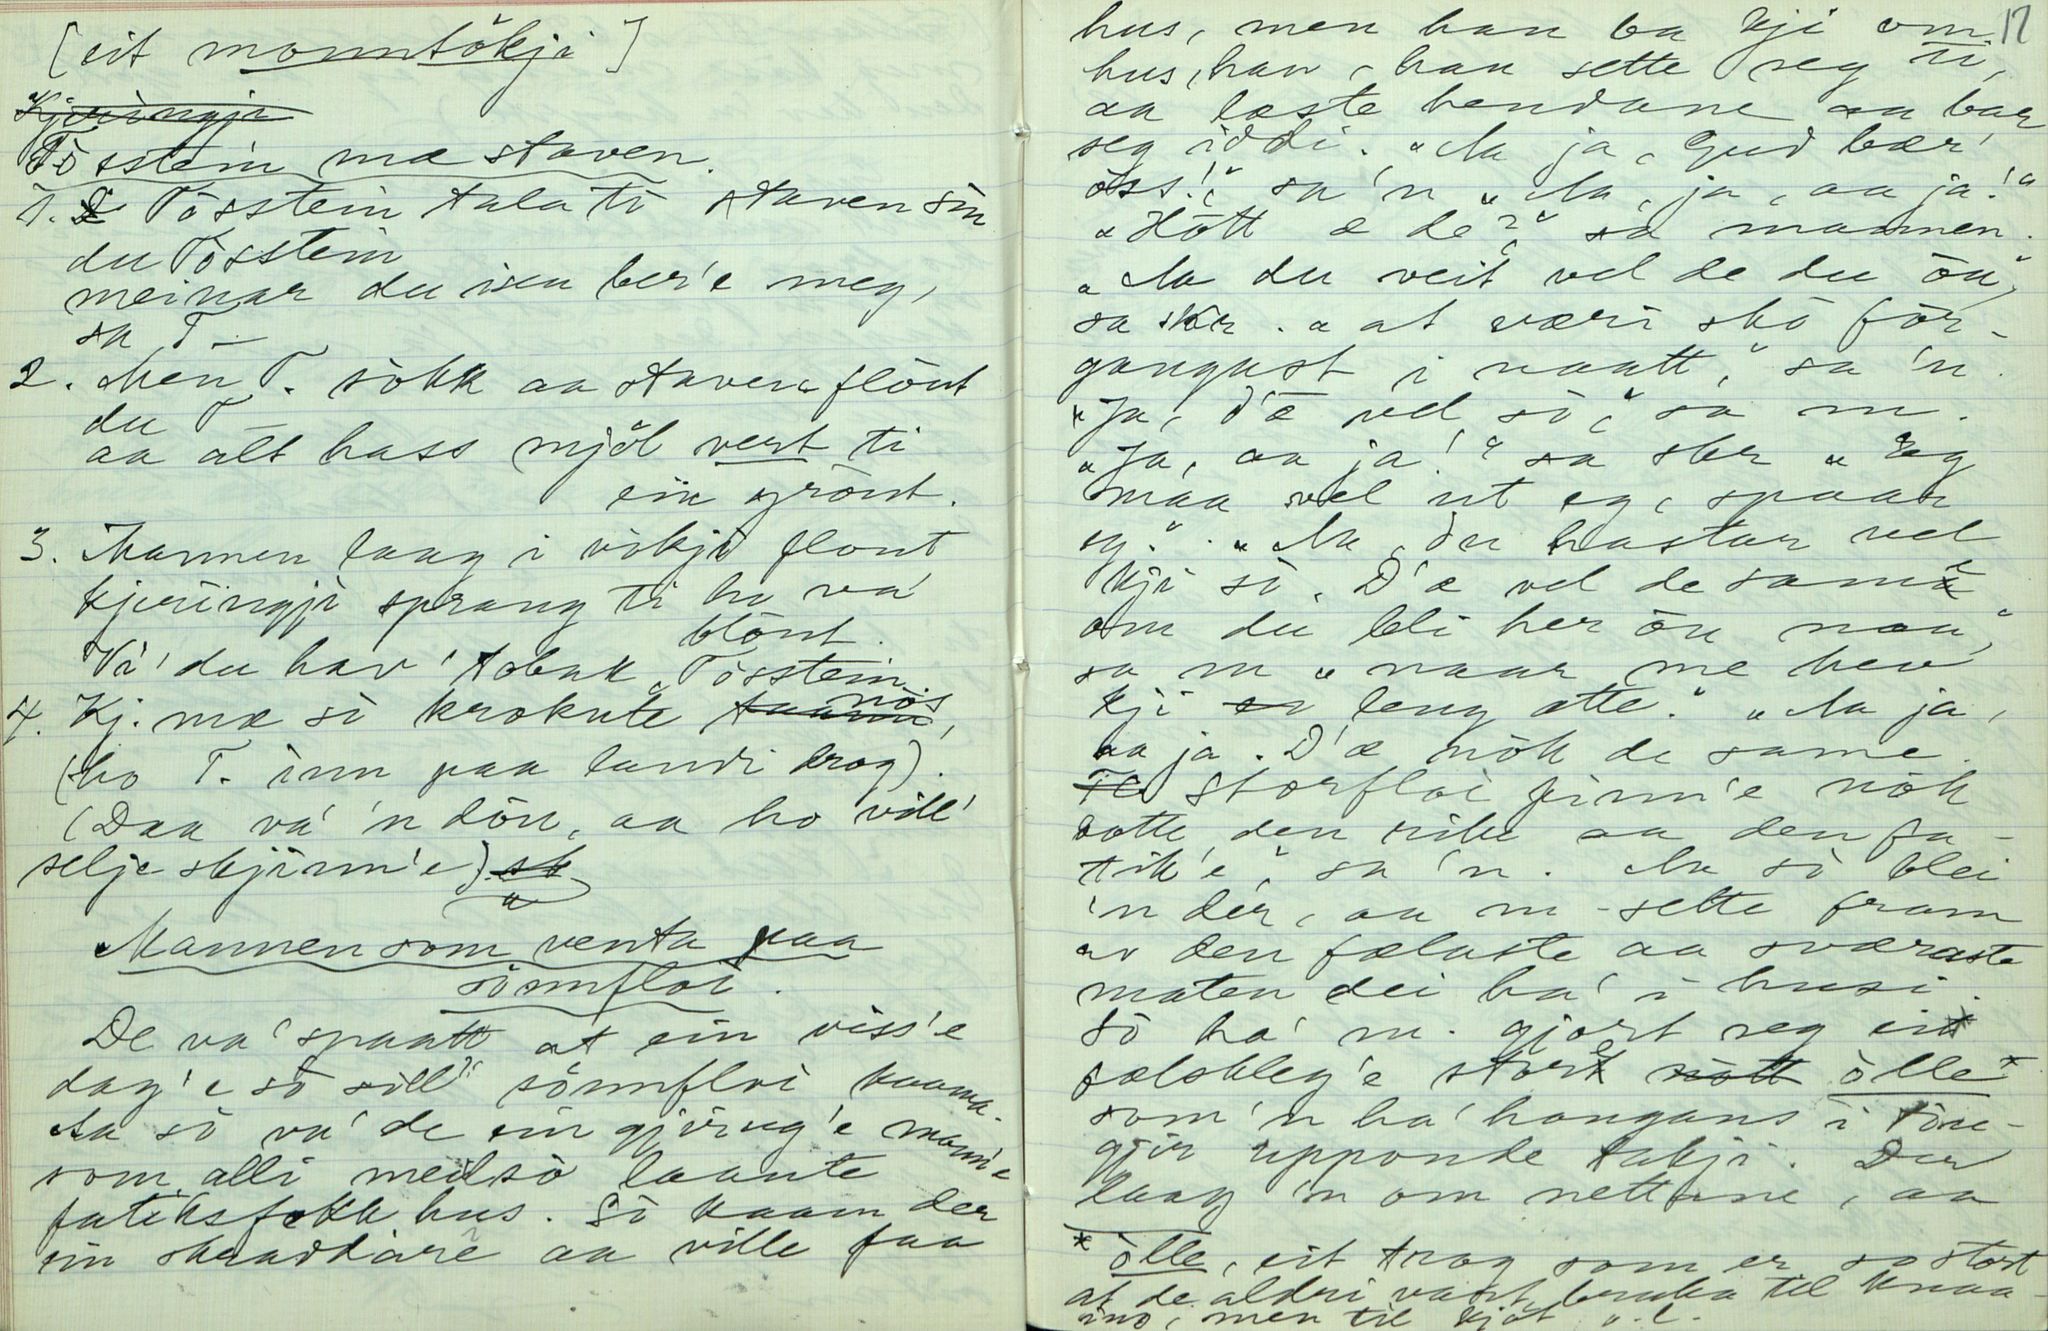 [eit monntökji]
Kjeringji
Tösstein mæ staven.
1. Tösstein tala ti staven sin
du Tösstein
meinar du isen ber'e meg,
sa T.
2. Men T. sökk aa staven flöut
du T
aa alt hass mjöl vert ti
ein gröut.
3. Mannen laag i vikji flout
kjeringji sprang ti ho va'
blöut.
Vi' du hav' tobak, Tösstein.
4. Kj. mæ si krokute nös,
(ho T. inn paa landi drog).
(Daa va' 'n dön, aa ho vill'
selje skjinn'e)
Mannen som venta paa
sönnfloi.
De va' spaatt at ein viss'e
dag'e så sill' sönnfloi kaama.
Aa så va' de ein gjering'e mann'e
som alli meilsö laante
fatiksfokk hus. Så kaam der
ein skraddare aa ville faa
17
hus, men han ba kji om
hus, han, han sette seg ti,
aa læste hendane aa bar
seg iddi. "Aa ja, Gud bær'
öss!" sa'n "Aa, ja, aa ja!"
"Hött æ de?" sa mannen.
"Aa du veit vel de du öu",
sa skr. "at væri skö för-
gangast i naatt," sa 'n.
"Ja, d'æ vel sö," sa m.
"Ja, aa ja!" sa skr "Eg
maa vel ut eg, spaar
eg." "Aa, du hastar vel
kji sö. D'æ vel de same
om du bli her öu naa",
sa m "naar me hev
kji leng atte." "Aa ja,
aa ja. D'æ nök de same.
Storfloi finn'e nök
botte den rike aa den fa-
tik'e," sa 'n. Aa så blei
'n der, aa m sette fram
av den fælaste aa sværaste
maten dei ha' i husi.
Så ha' m. gjort seg eit
sælskleg'e stort ölle*
som 'n ha' hangans i töu-
gjir upponde takji. Der
laag 'n om nettane, aa
* ölle, eit trog som er so stort
at de aldri vart bruka til knaa-
ing, men til kjöt o.l.